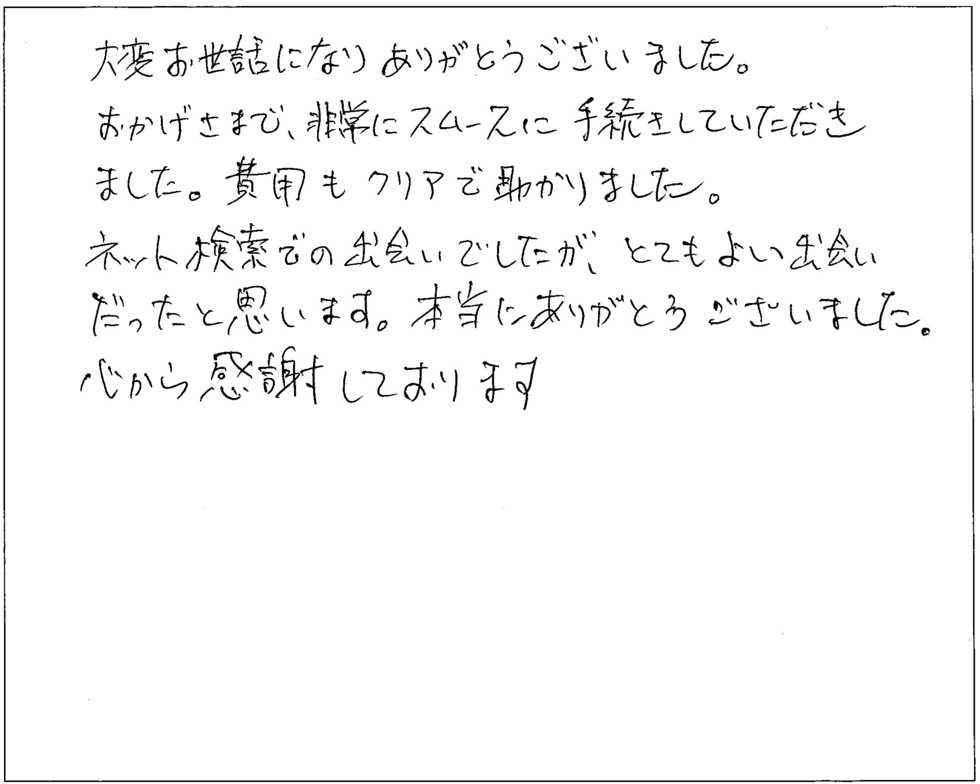 大変お世話になりありがとうございました。
おかげさまで、非常にスムースに手続きしていただき
ました。費用もクリアで助かりました。
ネット検索での出会いでしたが、とてもよい出会い
だったと思います。本当にありがとうございました。
心から感謝しております